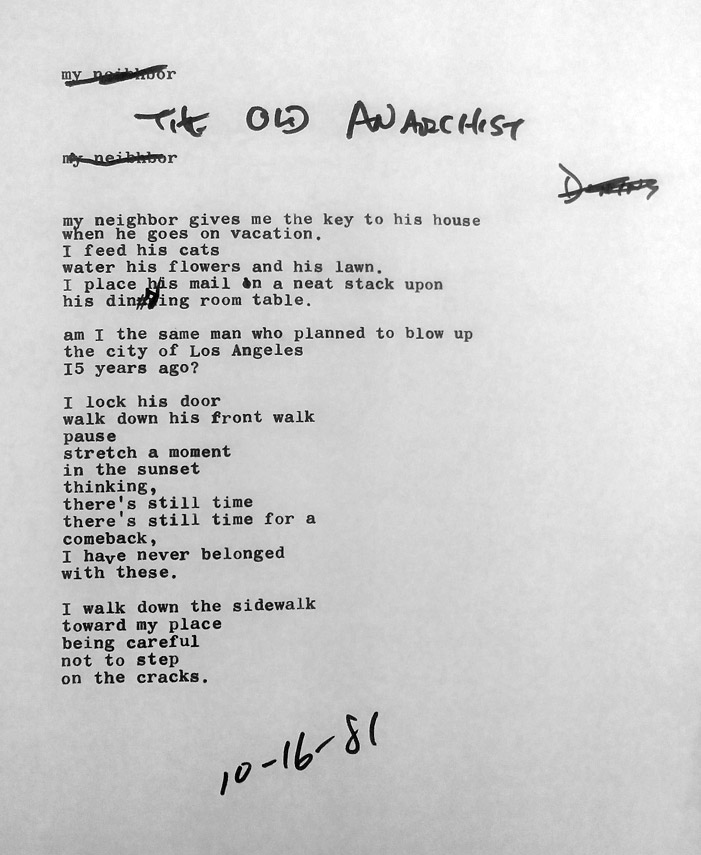 my neibhbor
THE OLD ANARCHIST
my neibhbor
my neighbor gives me the key to his house
when he goes on vacation.
I feed his cats
water his flowers and his lawn.
I place his mail in a neat stack upon
his dining room table.
am I the same man who planned to blow up
the city of Los Angeles
I5 years ago?
I lock his door
walk down his front walk
pause
stretch a moment
in the sunset
thinking,
there's still time
there's still time for a
comeback,
I have never belonged
with these.
I walk down the sidewalk
toward my place
being careful
not to step
on the cracks.
10-16-81